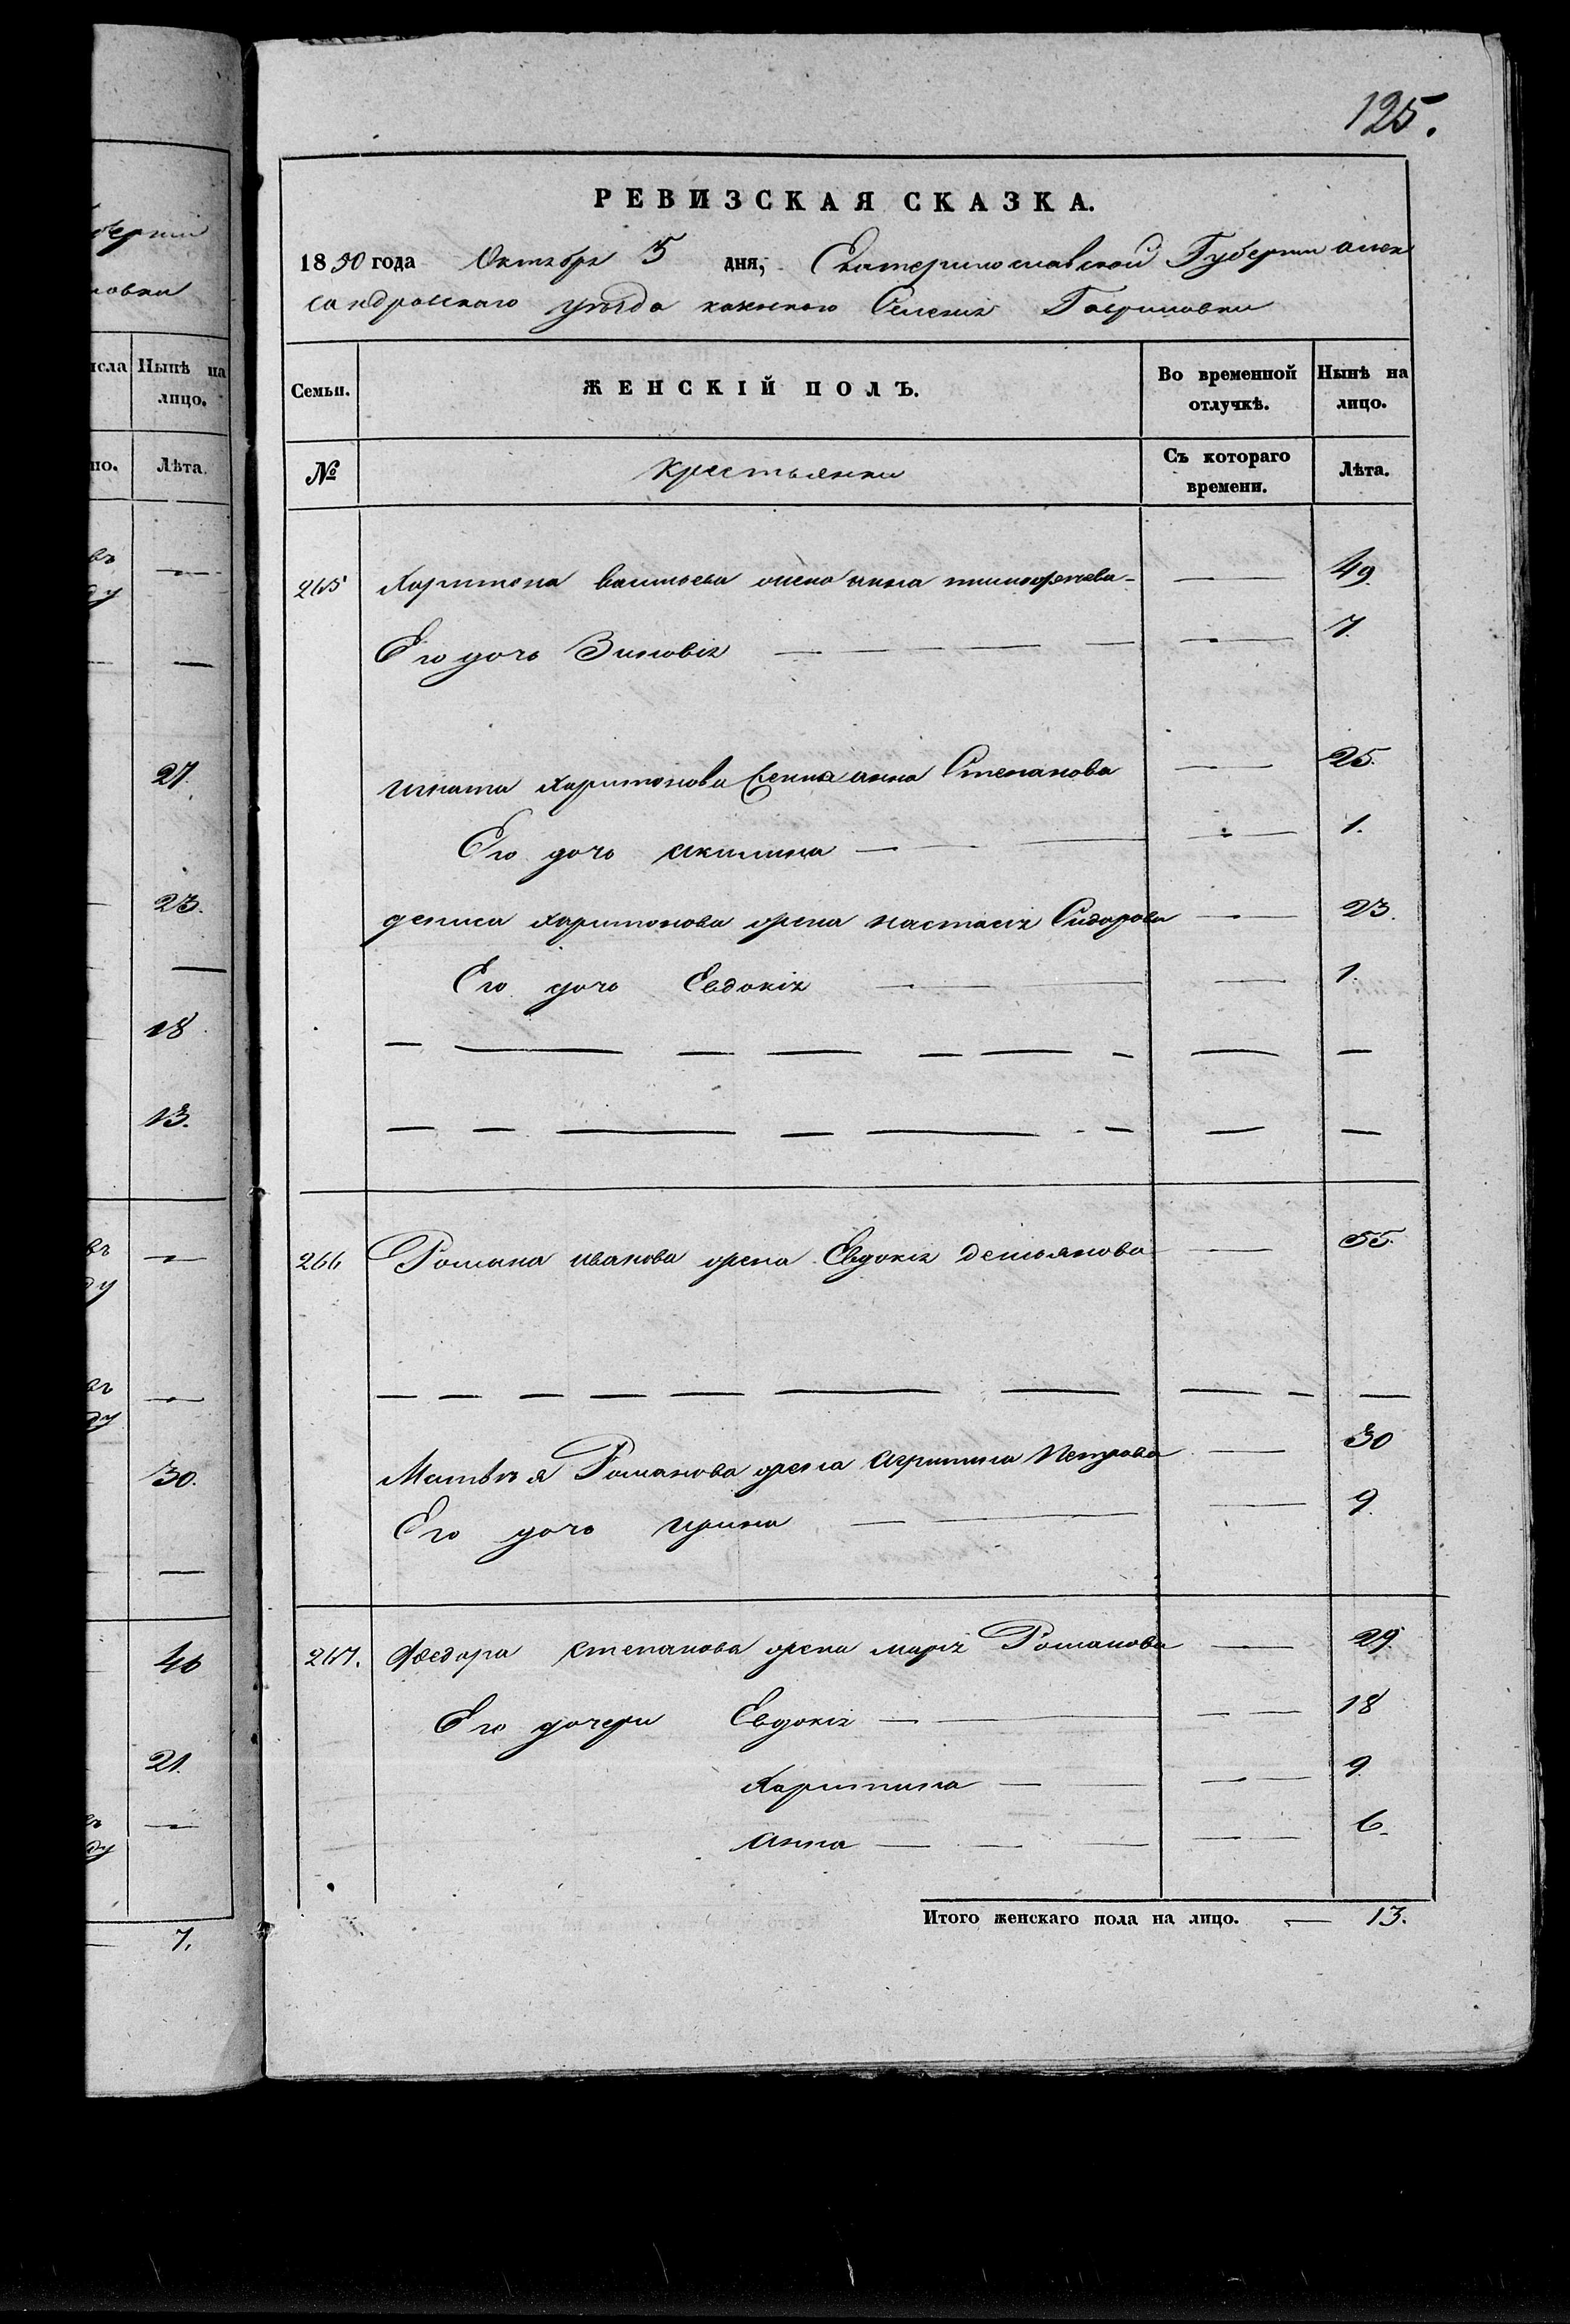 125.
РЕВИЗСКАЯ СКАЗКА.
1850 года Октября 5 дня, Екатеринославской Губернии Алек
сандровскаго уѣзда казеннаго Селенія Гавриловки
Семьи.
ЖЕНСКІЙ ПОЛЪ.
Во временной отлучкѣ.
Нынѣ на лицо.
№
Крестьянки
Съ котораго времени.
Лѣта.
265 Харитона Васильева жена Анна Тимофеева 49.
Его дочь Зиновія 7.
Игната Харитонова жена Анна Степанова 25.
Его дочь Акилина 1.
Дениса Харитонова жена Настасія Сидорова 23.
Его дочь Евдокія 1.
266 Романа Иванова жена Евдокія Демьянова 55.
Матвѣя Романова жена Агрипина Петрова 30
Его дочь Ирина 9.
267. Федора Степанова жена Марія Романова 29.
Его дочери Евдокія 18
Харитина 9.
Анна 6.
Итого женскаго пола на лицо. — 13.
Нынѣ на
лицо.
Лѣта.
27.
23.
18.
13.
30.
40
21.
7.